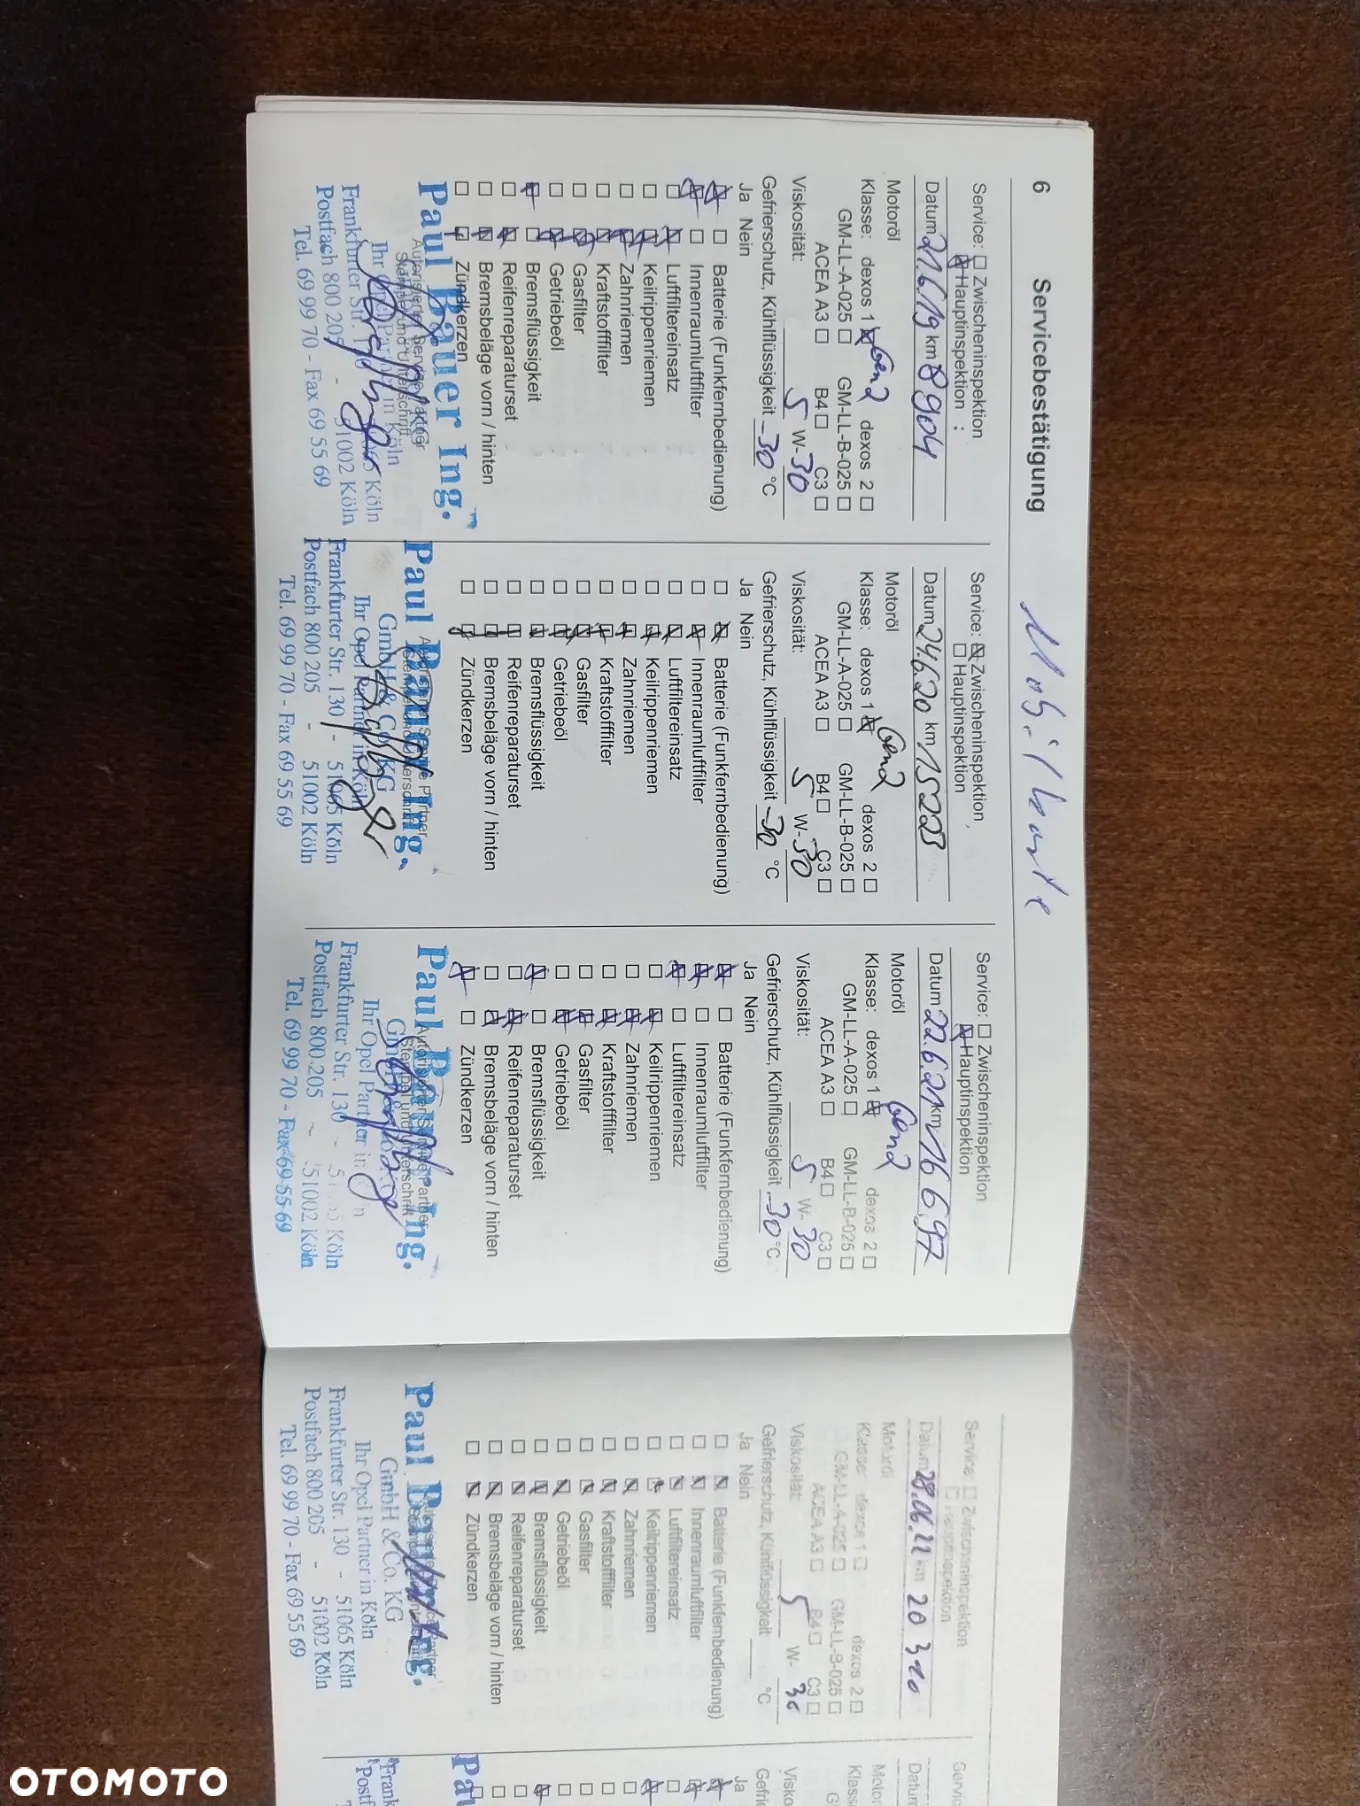 6 Servicebestätigung Mobilkarte
Service: ☐ Zwischeninspektion
☒ Hauptinspektion
Datum 21.6.19 km 8904
Motoröl
Klasse: dexos 1 ☒ Gen2 dexos 2 ☐
GM-LL-A-025 ☐ GM-LL-B-025 ☐
ACEA A3 ☐ B4 ☐ C3 ☐
Viskosität: 5 W- 30
Gefrierschutz, Kühlflüssigkeit -30 °C
Ja Nein
☒ ☐ Batterie (Funkfernbedienung)
☒ ☐ Innenraumluftfilter
☐ ☒ Luftfiltereinsatz
☐ ☒ Keilrippenriemen
☐ ☒ Zahnriemen
☐ ☒ Kraftstofffilter
☐ ☒ Gasfilter
☐ ☒ Getriebeöl
☒ ☐ Bremsflüssigkeit
☐ ☒ Reifenreparaturset
☐ ☒ Bremsbeläge vorn / hinten
☐ ☒ Zündkerzen
Paul Bauer Ing.
Frankfurter Str. Köln
Postfach 800 205 - 51002 Köln
Tel. 69 99 70 - Fax 69 55 69
Service: ☒ Zwischeninspektion
☐ Hauptinspektion
Datum 24.6.20 km 15223
Motoröl
Klasse: dexos 1 ☒ Gen2 dexos 2 ☐
GM-LL-A-025 ☐ GM-LL-B-025 ☐
ACEA A3 ☐ B4 ☐ C3 ☐
Viskosität: 5 W- 30
Gefrierschutz, Kühlflüssigkeit -30 °C
Ja Nein
☐ ☒ Batterie (Funkfernbedienung)
☐ ☒ Innenraumluftfilter
☐ ☒ Luftfiltereinsatz
☐ ☒ Keilrippenriemen
☐ ☒ Zahnriemen
☐ ☒ Kraftstofffilter
☐ ☒ Gasfilter
☐ ☒ Getriebeöl
☐ ☒ Bremsflüssigkeit
☐ ☒ Reifenreparaturset
☐ ☒ Bremsbeläge vorn / hinten
☐ ☒ Zündkerzen
Paul Bauer Ing.
GmbH & Co. KG
Ihr Opel Partner in Köln
Frankfurter Str. 130 - 51065 Köln
Postfach 800 205 - 51002 Köln
Tel. 69 99 70 - Fax 69 55 69
Service: ☐ Zwischeninspektion
☒ Hauptinspektion
Datum 22.6.21 km 16697
Motoröl
Klasse: dexos 1 ☒ Gen2 dexos 2 ☐
GM-LL-A-025 ☐ GM-LL-B-025 ☐
ACEA A3 ☐ B4 ☐ C3 ☐
Viskosität: 5 W- 30
Gefrierschutz, Kühlflüssigkeit -30 °C
Ja Nein
☒ ☐ Batterie (Funkfernbedienung)
☒ ☐ Innenraumluftfilter
☒ ☐ Luftfiltereinsatz
☐ ☒ Keilrippenriemen
☐ ☒ Zahnriemen
☐ ☒ Kraftstofffilter
☐ ☒ Gasfilter
☐ ☒ Getriebeöl
☒ ☐ Bremsflüssigkeit
☐ ☒ Reifenreparaturset
☐ ☒ Bremsbeläge vorn / hinten
☒ ☐ Zündkerzen
Paul Bauer Ing.
Ihr Opel Partner in
Frankfurter Str. 130 - Köln
Postfach 800 205 - 51002 Köln
Tel. 69 99 70 - Fax 69 55 69
Service: ☐ Zwischeninspektion
☐ Hauptinspektion
Datum 28.06.22 km 20 310
Motoröl
Klasse: dexos 1 ☐ dexos 2 ☐
GM-LL-A-025 ☐ GM-LL-B-025 ☐
ACEA A3 ☐ B4 ☐ C3 ☐
Viskosität: 5 W- 30
Gefrierschutz, Kühlflüssigkeit °C
Ja Nein
☐ ☒ Batterie (Funkfernbedienung)
☐ ☒ Innenraumluftfilter
☐ ☒ Luftfiltereinsatz
☐ ☒ Keilrippenriemen
☐ ☒ Zahnriemen
☐ ☒ Kraftstofffilter
☐ ☒ Gasfilter
☐ ☒ Getriebeöl
☐ ☒ Bremsflüssigkeit
☐ ☒ Reifenreparaturset
☐ ☒ Bremsbeläge vorn / hinten
☐ ☒ Zündkerzen
Paul Bauer Ing.
GmbH & Co. KG
Ihr Opel Partner in Köln
Frankfurter Str. 130 - 51065 Köln
Postfach 800 205 - 51002 Köln
Tel. 69 99 70 - Fax 69 55 69
OTOMOTO